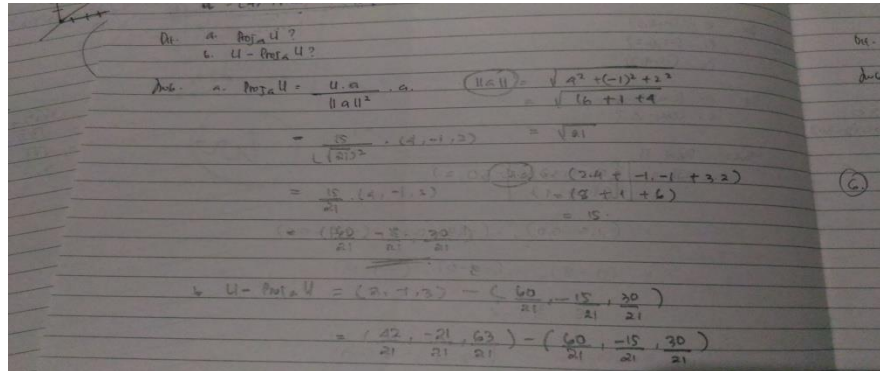 Dit. a. Proj_a U ?
b. U - Proj_a U ?
Jwb. a. Proj_a U = u.a / ||a||² . a. ||a|| = √(4² + (-1)² + 2²)
= √(16 + 1 + 4)
= 15 / (√21)² . (4, -1, 2) = √21
(2.4 + -1.-1 + 3.2)
= 15/21 . (4, -1, 2) (8 + 1 + 6)
= 15.
= (60/21, -15/21, 30/21)
b. U - Proj_a U = (2, -1, 3) - (60/21, -15/21, 30/21)
= (42/21, -21/21, 63/21) - (60/21, -15/21, 30/21)
Dit.
Jwb.
6.